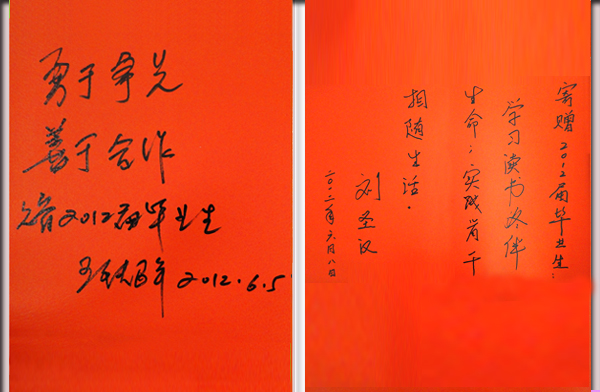 勇于争先
善于合作
2012届毕业生
2012.6.5
寄赠2012届毕业生:
学习读书终伴
生命;实践苦干
相随生活。
刘圣汉
二〇一二年六月八日